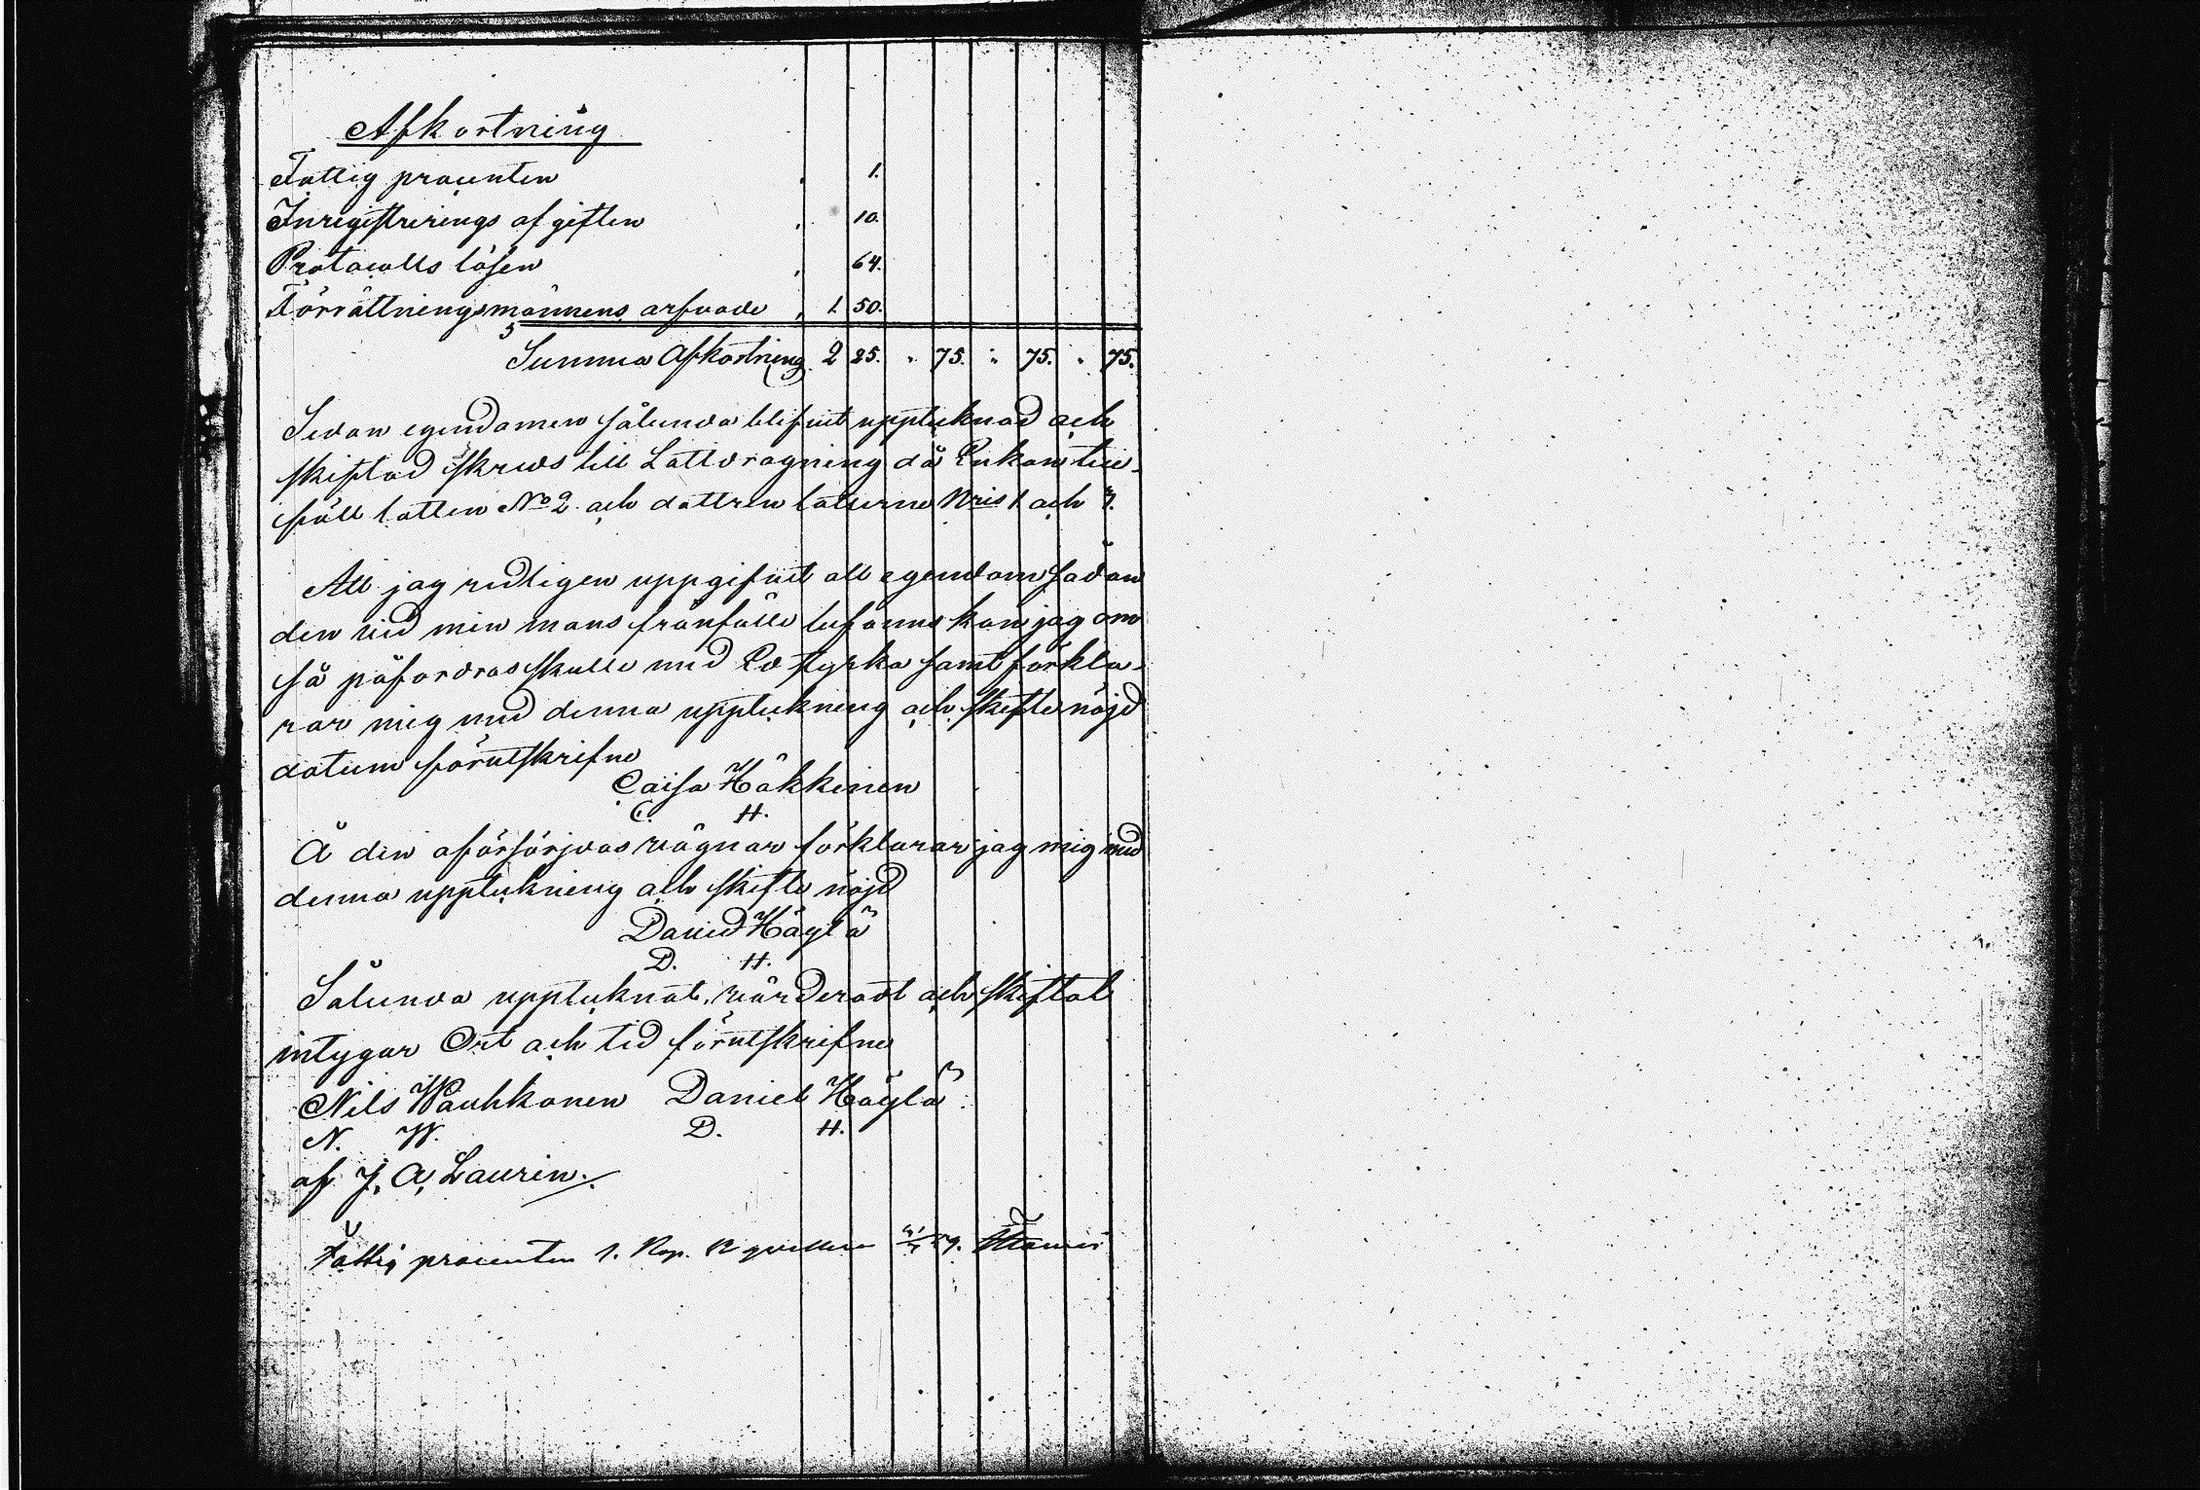 Afkortning
Fattig procenten , 1.
Inregistrerings afgiften , 10.
Protocolls lösen , 64.
Förrättningsmännens arfvode , 1. 50.
Summa Afkortning 2 25. " 75. " 75. " 75.
Sedan egendomen sålunda blifvit upptecknad och
skiftad skreds till Lottdragning då Enkan till-
föll lotten No 2 och dottren lotterne Nris 1 och 3.
Att jag redligen uppgifvit all egendom sådan
den vid min mans frånfälle befanns kan jag om
så påfordras skulle med Ed styrka samt förkla-
rar mig med denna uppteckning och skifte nöjd
datum förutskrifne
Caisa Häkkinen
C. H.
Å den oförsörjdas vägnar förklarar jag mig med
denna uppteckning och skifte nöjd
David Häylä
D. H.
Sålunda upptecknat, värderadt och skiftat
intygar Ort och tid förutskrifne
Nils Wauhkonen Daniel Häylä
N. W. D. H.
af J. A. Laurin.
Fattig procenten 1. Kop. qvitteras